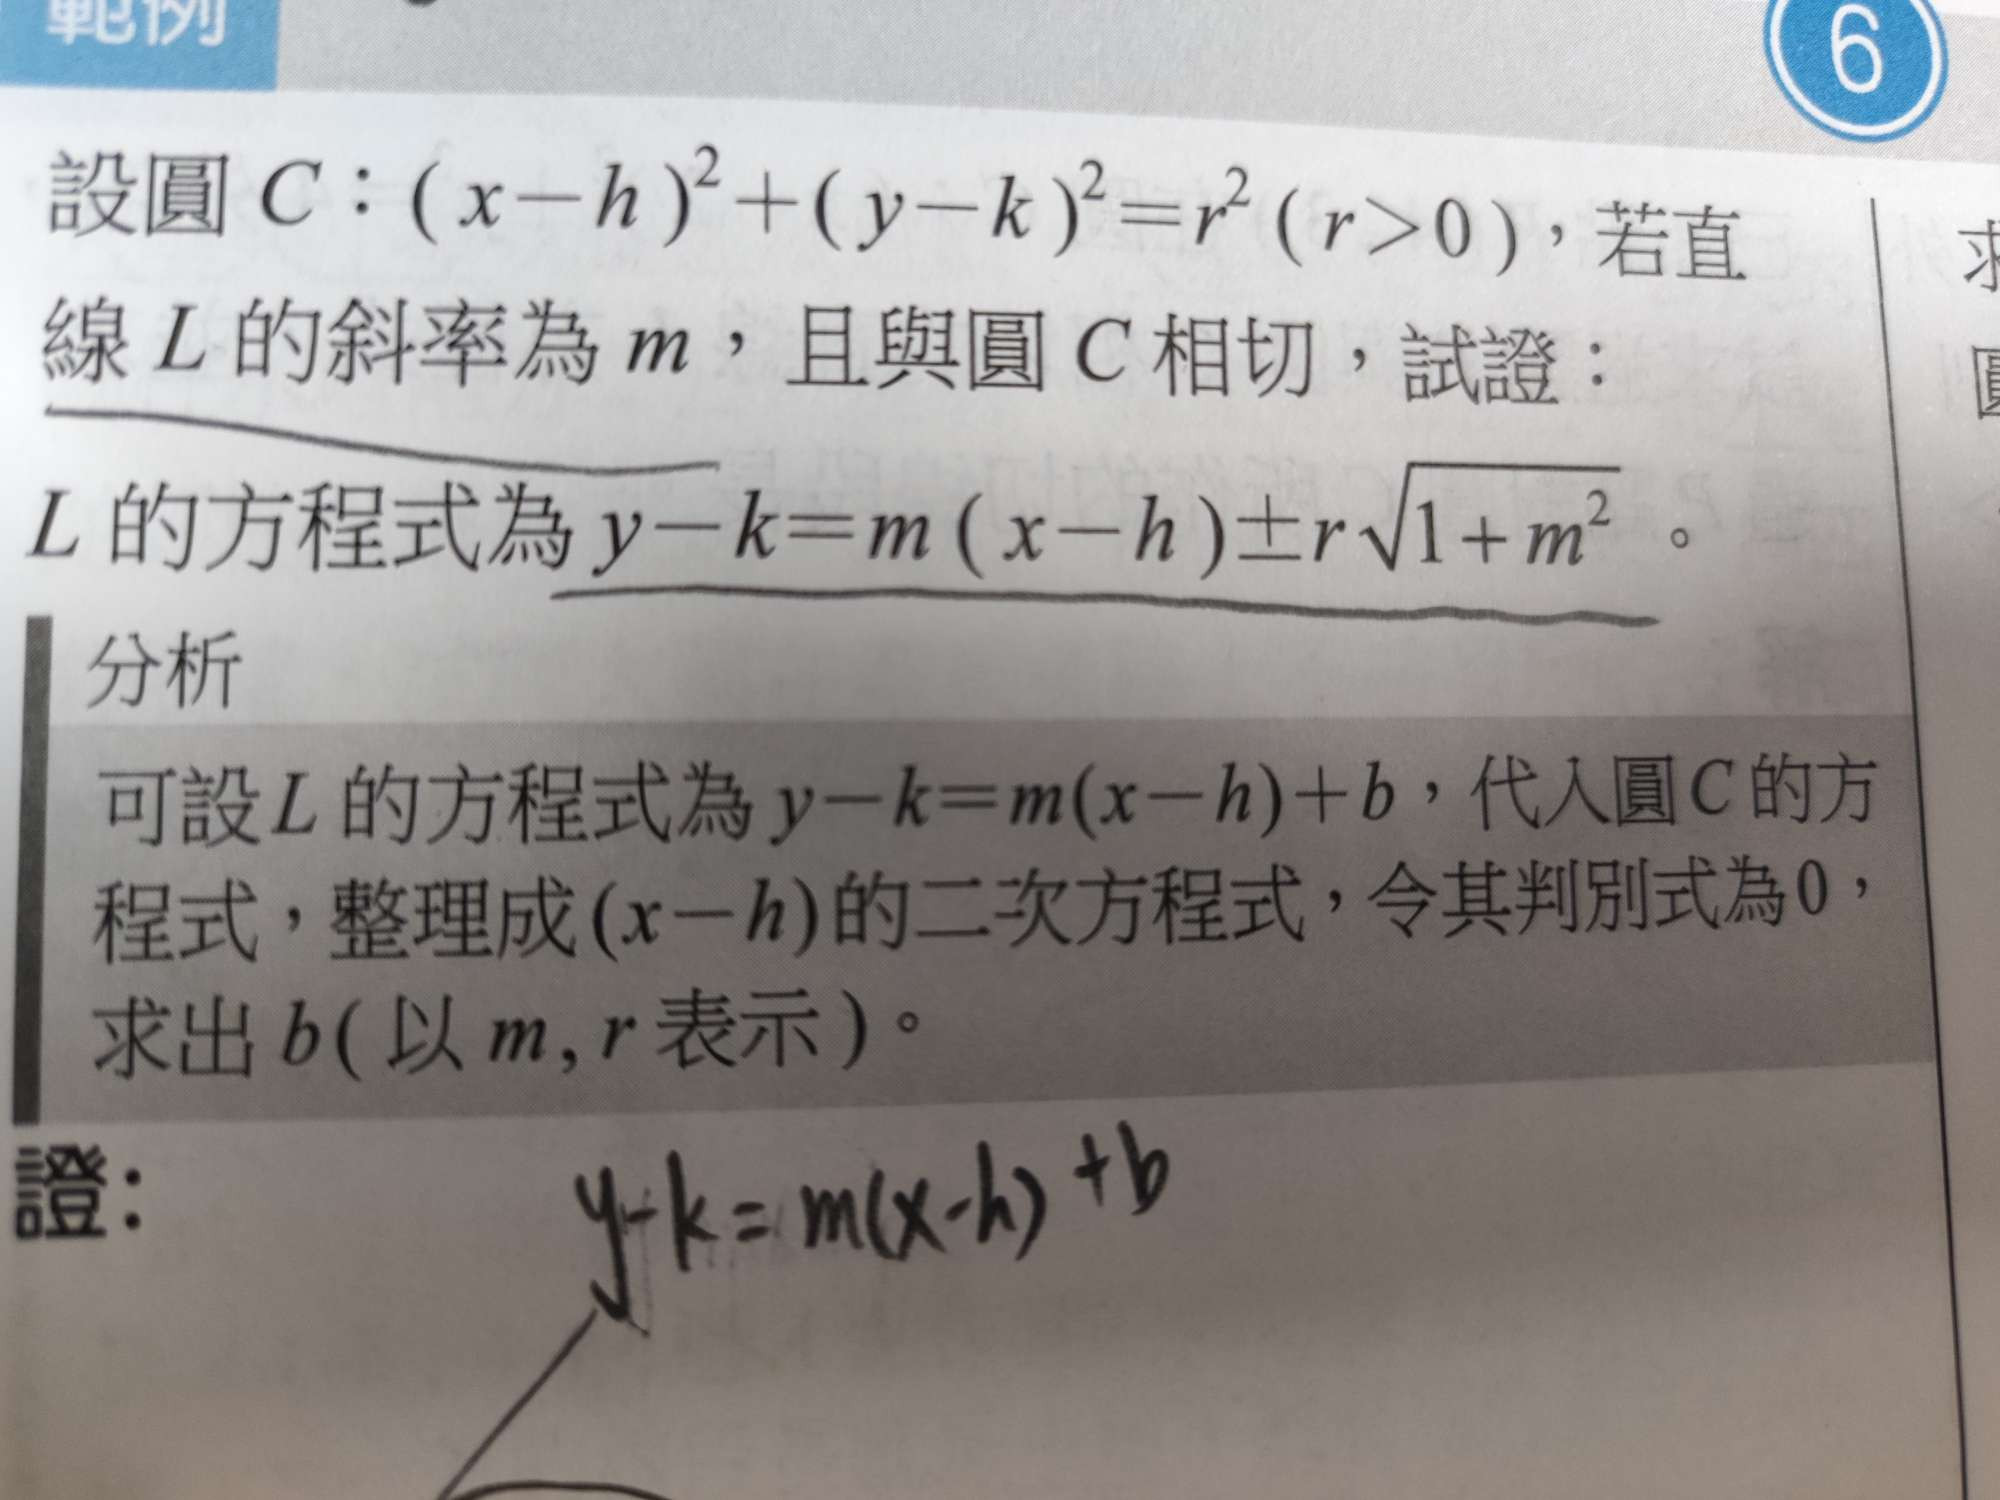 範例
6
設圓 C：( x－h )²＋( y－k )²＝r² ( r＞0 )，若直
線 L 的斜率為 m，且與圓 C 相切，試證：
L 的方程式為 y－k＝m ( x－h )±r√(1＋m²) 。
分析
可設 L 的方程式為 y－k＝m(x－h)＋b，代入圓 C 的方
程式，整理成(x－h)的二次方程式，令其判別式為0，
求出 b( 以 m , r 表示 )。
證：
y-k = m(x-h) +b
求